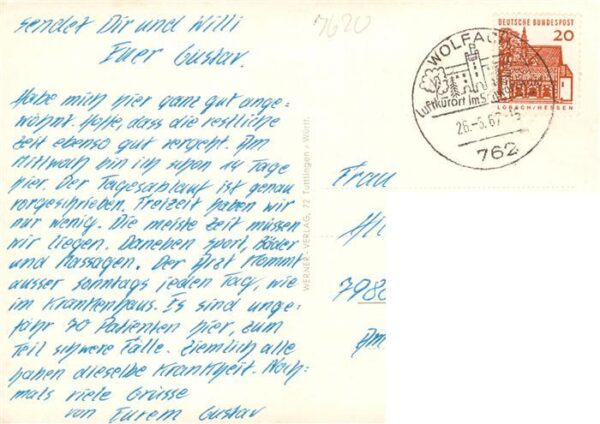 sendet Dir und Willi
Euer Gustav.
Habe mich hier ganz gut ange-
wöhnt. Hoffe, dass die restliche
Zeit ebenso gut vergeht. Am
Mittwoch bin ich schon 14 Tage
hier. Der Tagesablauf ist genau
vorgeschrieben. Freizeit haben wir
nur wenig. Die meiste Zeit müssen
wir liegen. Daneben Sport, Bäder
und Massagen. Der Arzt kommt
ausser sonntags jeden Tag, wie
im Krankenhaus. Es sind unge-
fähr 70 Patienten hier, zum
Teil schwere Fälle. Ziemlich alle
haben dieselbe Krankheit. Noch-
mals viele Grüsse
von Eurem Gustav
7620
WERNER-VERLAG, 72 Tuttlingen / Württ.
WOLFACH
Luftkurort im
26.-5.67
762
DEUTSCHE BUNDESPOST
20
LORSCH/HESSEN
Frau
798